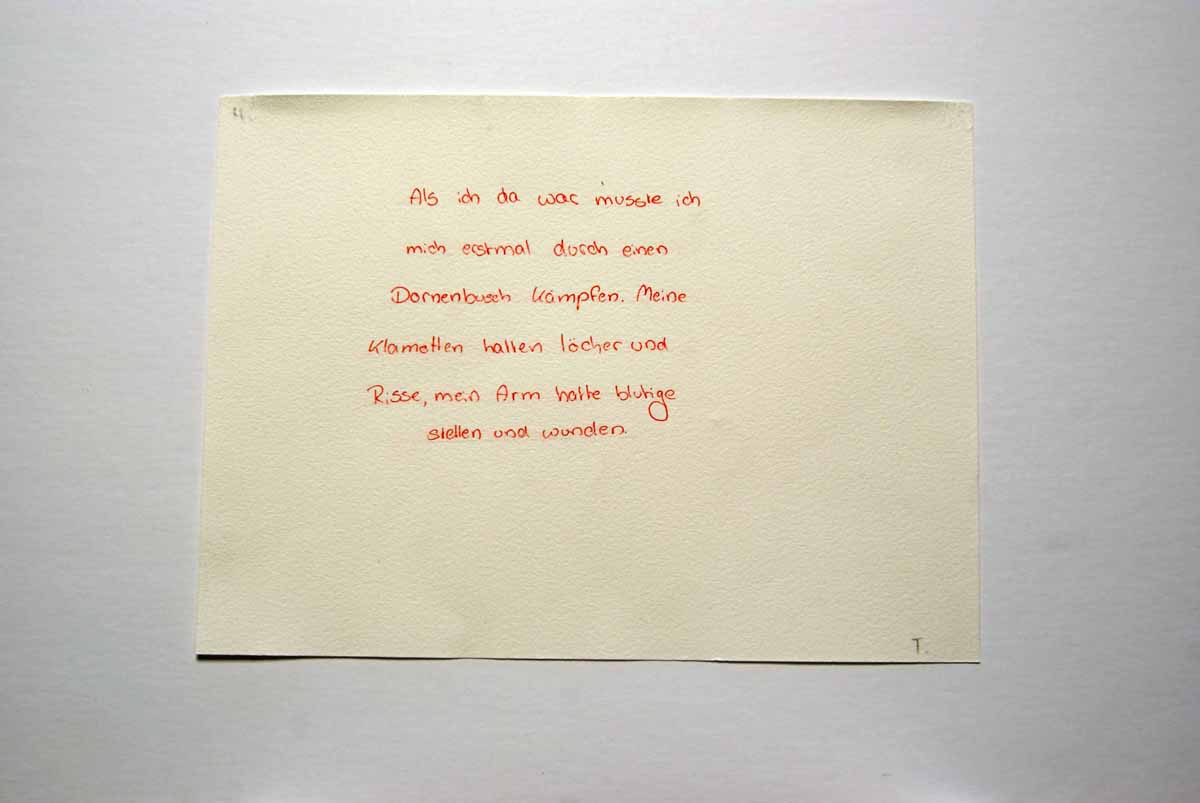 4.
Als ich da war musste ich
mich erstmal durch einen
Dornenbusch kämpfen. Meine
Klamotten hatten löcher und
Risse, mein Arm hatte blutige
stellen und wunden.
T.